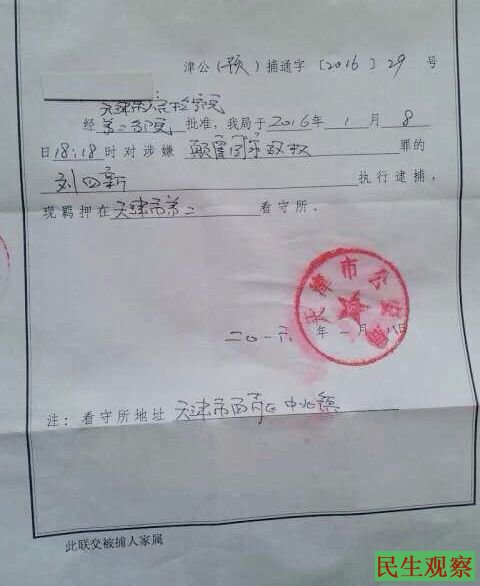 津公(预)捕通字〔2016〕29 号
:
天津市人民检察院
经第二分院批准，我局于2016年 1 月 8
日18:18时对涉嫌 颠覆国家政权 罪的
刘四新 执行逮捕，
现羁押在天津市第二 看守所。
天津市公安局
二〇一六年一月八日
注：看守所地址 天津市西青区中北镇
此联交被捕人家属
民生观察